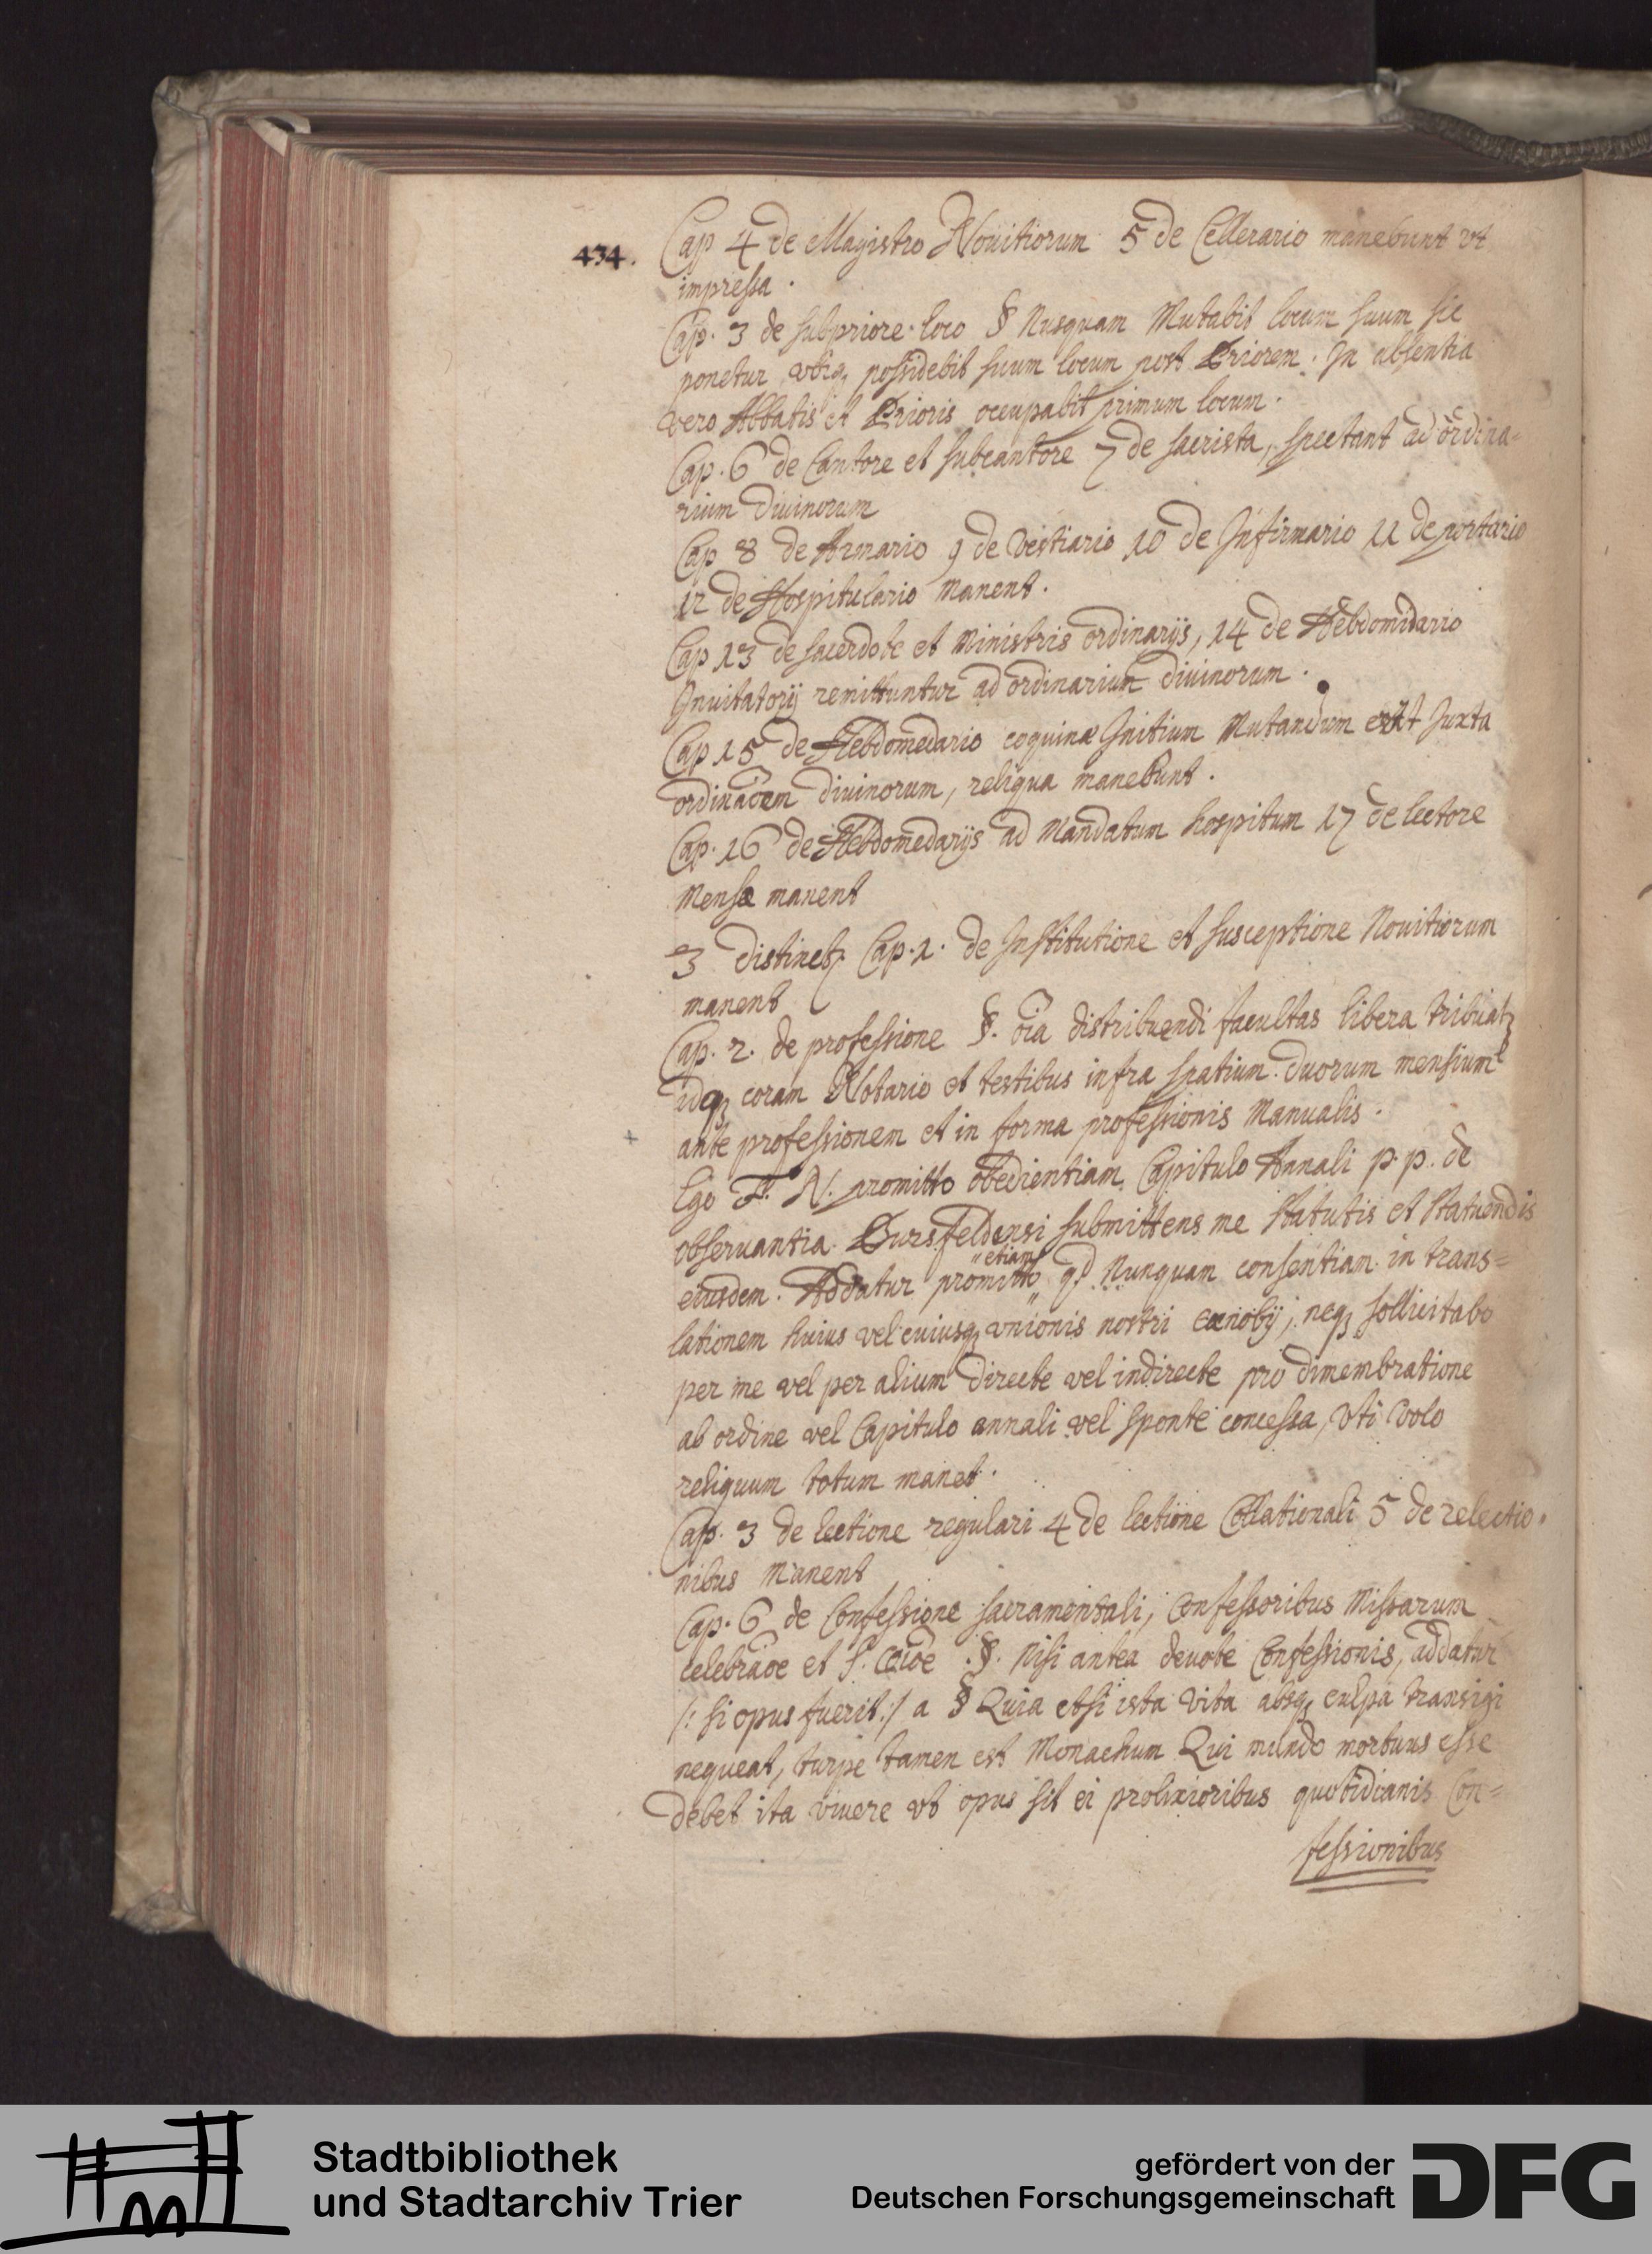 434.
Cap 4 de Magistro Nouitiorum 5 de Cellerario manebunt vt
impressa.
Cap. 3 de subpriore. loco § Nusquam Mutabit locum suum sic
ponetur vbiq, possidebit suum locum post Priorem. In absentia
vero Abbatis et Prioris occupabit primum locum.
Cap. 6 de Cantore et subcantore 7 de sacrista, spectant ad ordina=
rium Diuinorum
Cap 8 de Armario 9 de Vestiario 10 de Infirmario 11 de portario
12 de Hospitulario Manent.
Cap 13 de sacerdote et Ministris ordinarijs, 14 de Hebdomidario
Inuitatorij remittuntur ad ordinarium diuinorum.
Cap 15 de Hebdomedario coquinæ Initium Mutandum erit Juxta
ordinacem diuinorum, reliqua manebunt.
Cap. 16 de Hebdomedarijs ad Mandatum hospitum 17 de lectore
Mensæ manent
3 distinct. Cap. 1. de Institutione et susceptione Nouitiorum
manent
Cap. 2. de professione §. oia distribuendi facultas libera tribuat
idq coram Notario et testibus infra spatium duorum mensium
ante professionem et in forma professionis Manualis.
Ego F. N. promitto obedientiam Capitulo Annali p. p. de
obseruantia Bursfeldensi submittens me statutis et statuendis
eiusdem. Addatur promitto "etiam qd Nunquam consentiam in trans=
lationem huius vel cuiusq vnionis nostri cœnobij, neq sollicitabo
per me vel per alium directe vel indirecte pro dimembratione
ab ordine vel Capitulo annali vel sponte concessa, vti volo
reliquum totum manet.
Cap. 3 de lectione regulari 4 de lectione Collationali 5 de relectio=
nibus Manent
Cap. 6 de Confessione sacramentali, Confessoribus Missarum
celebraoe et S. Coioe. §. Nisi antea deuote Confessionis, addatur
/: si opus fuerit :/ a § Quia etsi ista vita absq culpa transigi
nequeat, turpe tamen est Monachum Qui mundo mortuus esse
debet ita viuere vt opus sit ei prolixioribus quotidianis Con=
fessionibus
Stadtbibliothek
und Stadtarchiv Trier
gefördert von der
Deutschen Forschungsgemeinschaft
DFG